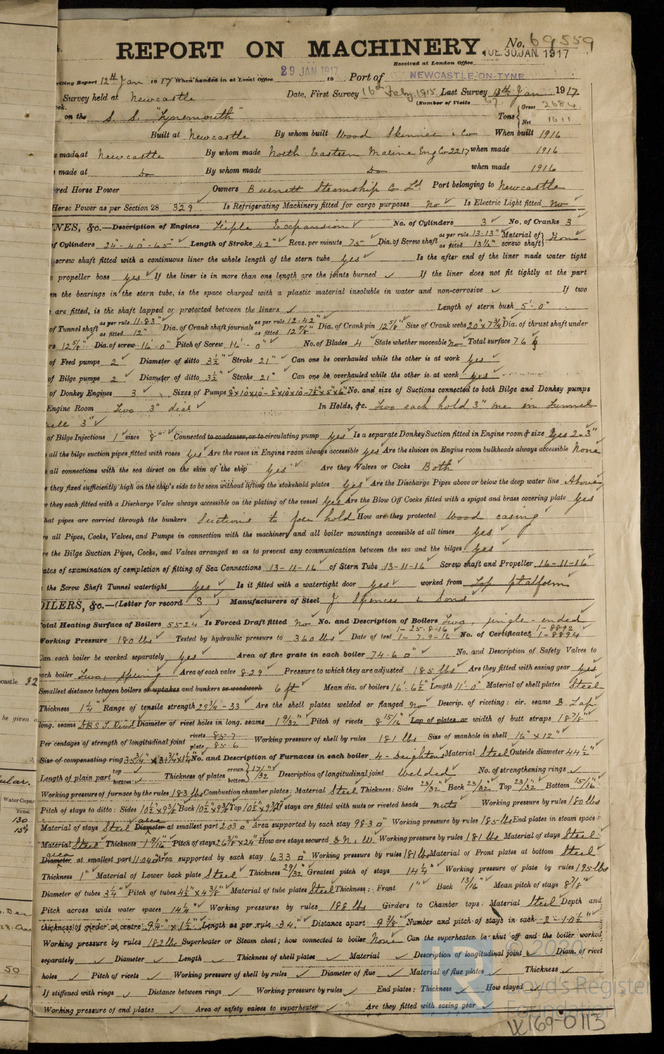 REPORT ON MACHINERY
No. 69559
Received at London Office TUE 30 JAN 1917
writing Report 12th Jan 1917 When handed in at Local Office 29 JAN 1917 Port of NEWCASTLE-ON-TYNE
Survey held at Newcastle Date, First Survey Last Survey Jan 1917
(Number of Visits 67)
on the S. S. "Tynemouth" Tons Gross 2684 Net 1611
Built at Newcastle By whom built Wood Skinner & Co When built 1916
made at Newcastle By whom made North Eastern Marine Eng Co 2217 when made 1916
made at Do By whom made Do when made 1916
Horse Power Owners Burnett Steamship Co Ld Port belonging to Newcastle
Horse Power as per Section 28 329 Is Refrigerating Machinery fitted for cargo purposes No Is Electric Light fitted No
NES, &c.—Description of Engines Triple Expansion No. of Cylinders 3 No. of Cranks 3
of Cylinders 24"-40"-65" Length of Stroke 42" Revs. per minute 75 Dia. of Screw shaft as per rule 13.13" as fitted 13½" Material of screw shaft Iron
screw shaft fitted with a continuous liner the whole length of the stern tube yes Is the after end of the liner made water tight
propeller boss yes If the liner is in more than one length are the joints burned If the liner does not fit tightly at the part
the bearings in the stern tube, is the space charged with a plastic material insoluble in water and non-corrosive If two
are fitted, is the shaft lapped or protected between the liners Length of stern bush 5'-0"
of Tunnel shaft as per rule 11.83" as fitted 12" Dia. of Crank shaft journals as per rule 12.42" as fitted 12⅝" Dia. of Crank pin 12⅝" Size of Crank webs Dia. of thrust shaft under
12⅝" Dia. of screw 16'-0" Pitch of Screw 16'-0" No. of Blades 4 State whether moveable No Total surface 76
of Feed pumps 2 Diameter of ditto 3½" Stroke 21" Can one be overhauled while the other is at work yes
of Bilge pumps 2 Diameter of ditto 3½" Stroke 21" Can one be overhauled while the other is at work yes
of Donkey Engines 3 Sizes of Pumps No. and size of Suctions connected to both Bilge and Donkey pumps
Engine Room Two 3" dia In Holds, &c. Two each hold 3" one in Tunnel
well 3"
of Bilge Injections 1 sizes 8" Connected to condenser, or to circulating pump yes Is a separate Donkey Suction fitted in Engine room & size yes 2-3"
all the bilge suction pipes fitted with roses yes Are the roses in Engine room always accessible yes Are the sluices on Engine room bulkheads always accessible None
all connections with the sea direct on the skin of the ship yes Are they Valves or Cocks Both
they fixed sufficiently high on the ship's side to be seen without lifting the stokehold plates yes Are the Discharge Pipes above or below the deep water line Above
they each fitted with a Discharge Valve always accessible on the plating of the vessel yes Are the Blow Off Cocks fitted with a spigot and brass covering plate yes
hat pipes are carried through the bunkers Suctions to fore hold How are they protected Wood casing
all Pipes, Cocks, Valves, and Pumps in connection with the machinery and all boiler mountings accessible at all times yes
re the Bilge Suction Pipes, Cocks, and Valves arranged so as to prevent any communication between the sea and the bilges yes
ates of examination of completion of fitting of Sea Connections 13-11-16 of Stern Tube 13-11-16 Screw shaft and Propeller 16-11-16
the Screw Shaft Tunnel watertight yes Is it fitted with a watertight door yes worked from Top platform
OILERS, &c.—(Letter for record S) Manufacturers of Steel J. Spencer & Sons
Total Heating Surface of Boilers 5524 Is Forced Draft fitted No No. and Description of Boilers Two, single-ended
Working Pressure 180 lbs Tested by hydraulic pressure to 360 lbs Date of test 1-25-8-16 1-7-9-16 No. of Certificate 1-8892 1-8894
Can each boiler be worked separately yes Area of fire grate in each boiler 74.6 No. and Description of Safety Valves to
each boiler Two, Spring Area of each valve 8.29 Pressure to which they are adjusted 185 lbs Are they fitted with easing gear yes
Smallest distance between boilers or uptakes and bunkers or woodwork 6 ft Mean dia. of boilers 16'-6½" Length 11'-0" Material of shell plates Steel
Thickness 1¼ Range of tensile strength 29½-33 Are the shell plates welded or flanged No Descrip. of riveting: cir. seams D Lap
long. seams Diameter of rivet holes in long. seams 1 9/32" Pitch of rivets 8 15/16" Lap of plates or width of butt straps 18⅞"
Per centages of strength of longitudinal joint rivets 85.7 plate 85.6 Working pressure of shell by rules 181 lbs Size of manhole in shell 16" x 12"
Size of compensating ring No. and Description of Furnaces in each boiler 4 - Deighton Material Steel Outside diameter 44½"
Length of plain part top bottom Thickness of plates crown bottom 17/32 Description of longitudinal joint Welded No. of strengthening rings
Working pressure of furnace by the rules 183 lbs Combustion chamber plates: Material Steel Thickness: Sides 23/32" Back 23/32" Top 23/32" Bottom 15/16"
Pitch of stays to ditto: Sides 10½" x 9¾" Back Top If stays are fitted with nuts or riveted heads nuts Working pressure by rules 180 lbs
Material of stays Steel area Diameter at smallest part 2.03 Area supported by each stay 98.3 Working pressure by rules 185 lbs End plates in steam space:
Material Steel Thickness 1 9/16" Pitch of stays How are stays secured D N. W Working pressure by rules 181 lbs Material of stays Steel
area Diameter at smallest part 11.04 Area supported by each stay 633 Working pressure by rules 181 lbs Material of Front plates at bottom Steel
Thickness 1" Material of Lower back plate Steel Thickness 29/32 Greatest pitch of stays 14¼" Working pressure of plate by rules 195 lbs
Diameter of tubes 3¼" Pitch of tubes 4½" x 4⅜" Material of tube plates Steel Thickness: Front 1" Back 13/16" Mean pitch of stays 8⅞"
Pitch across wide water spaces 14¼" Working pressures by rules 188 lbs Girders to Chamber tops: Material Steel Depth and
thickness of girder at centre Length as per rule 34" Distance apart 9⅜" Number and pitch of stays in each 2-10½"
Working pressure by rules 182 lbs Superheater or Steam chest; how connected to boiler None Can the superheater be shut off and the boiler worked
separately Diameter Length Thickness of shell plates Material Description of longitudinal joint Diam. of rivet
holes Pitch of rivets Working pressure of shell by rules Diameter of flue Material of flue plates Thickness
If stiffened with rings Distance between rings Working pressure by rules End plates: Thickness How stayed
Working pressure of end plates Area of safety valves to superheater Are they fitted with easing gear
© 2020
Lloyd's Register
Foundation
W169-0113